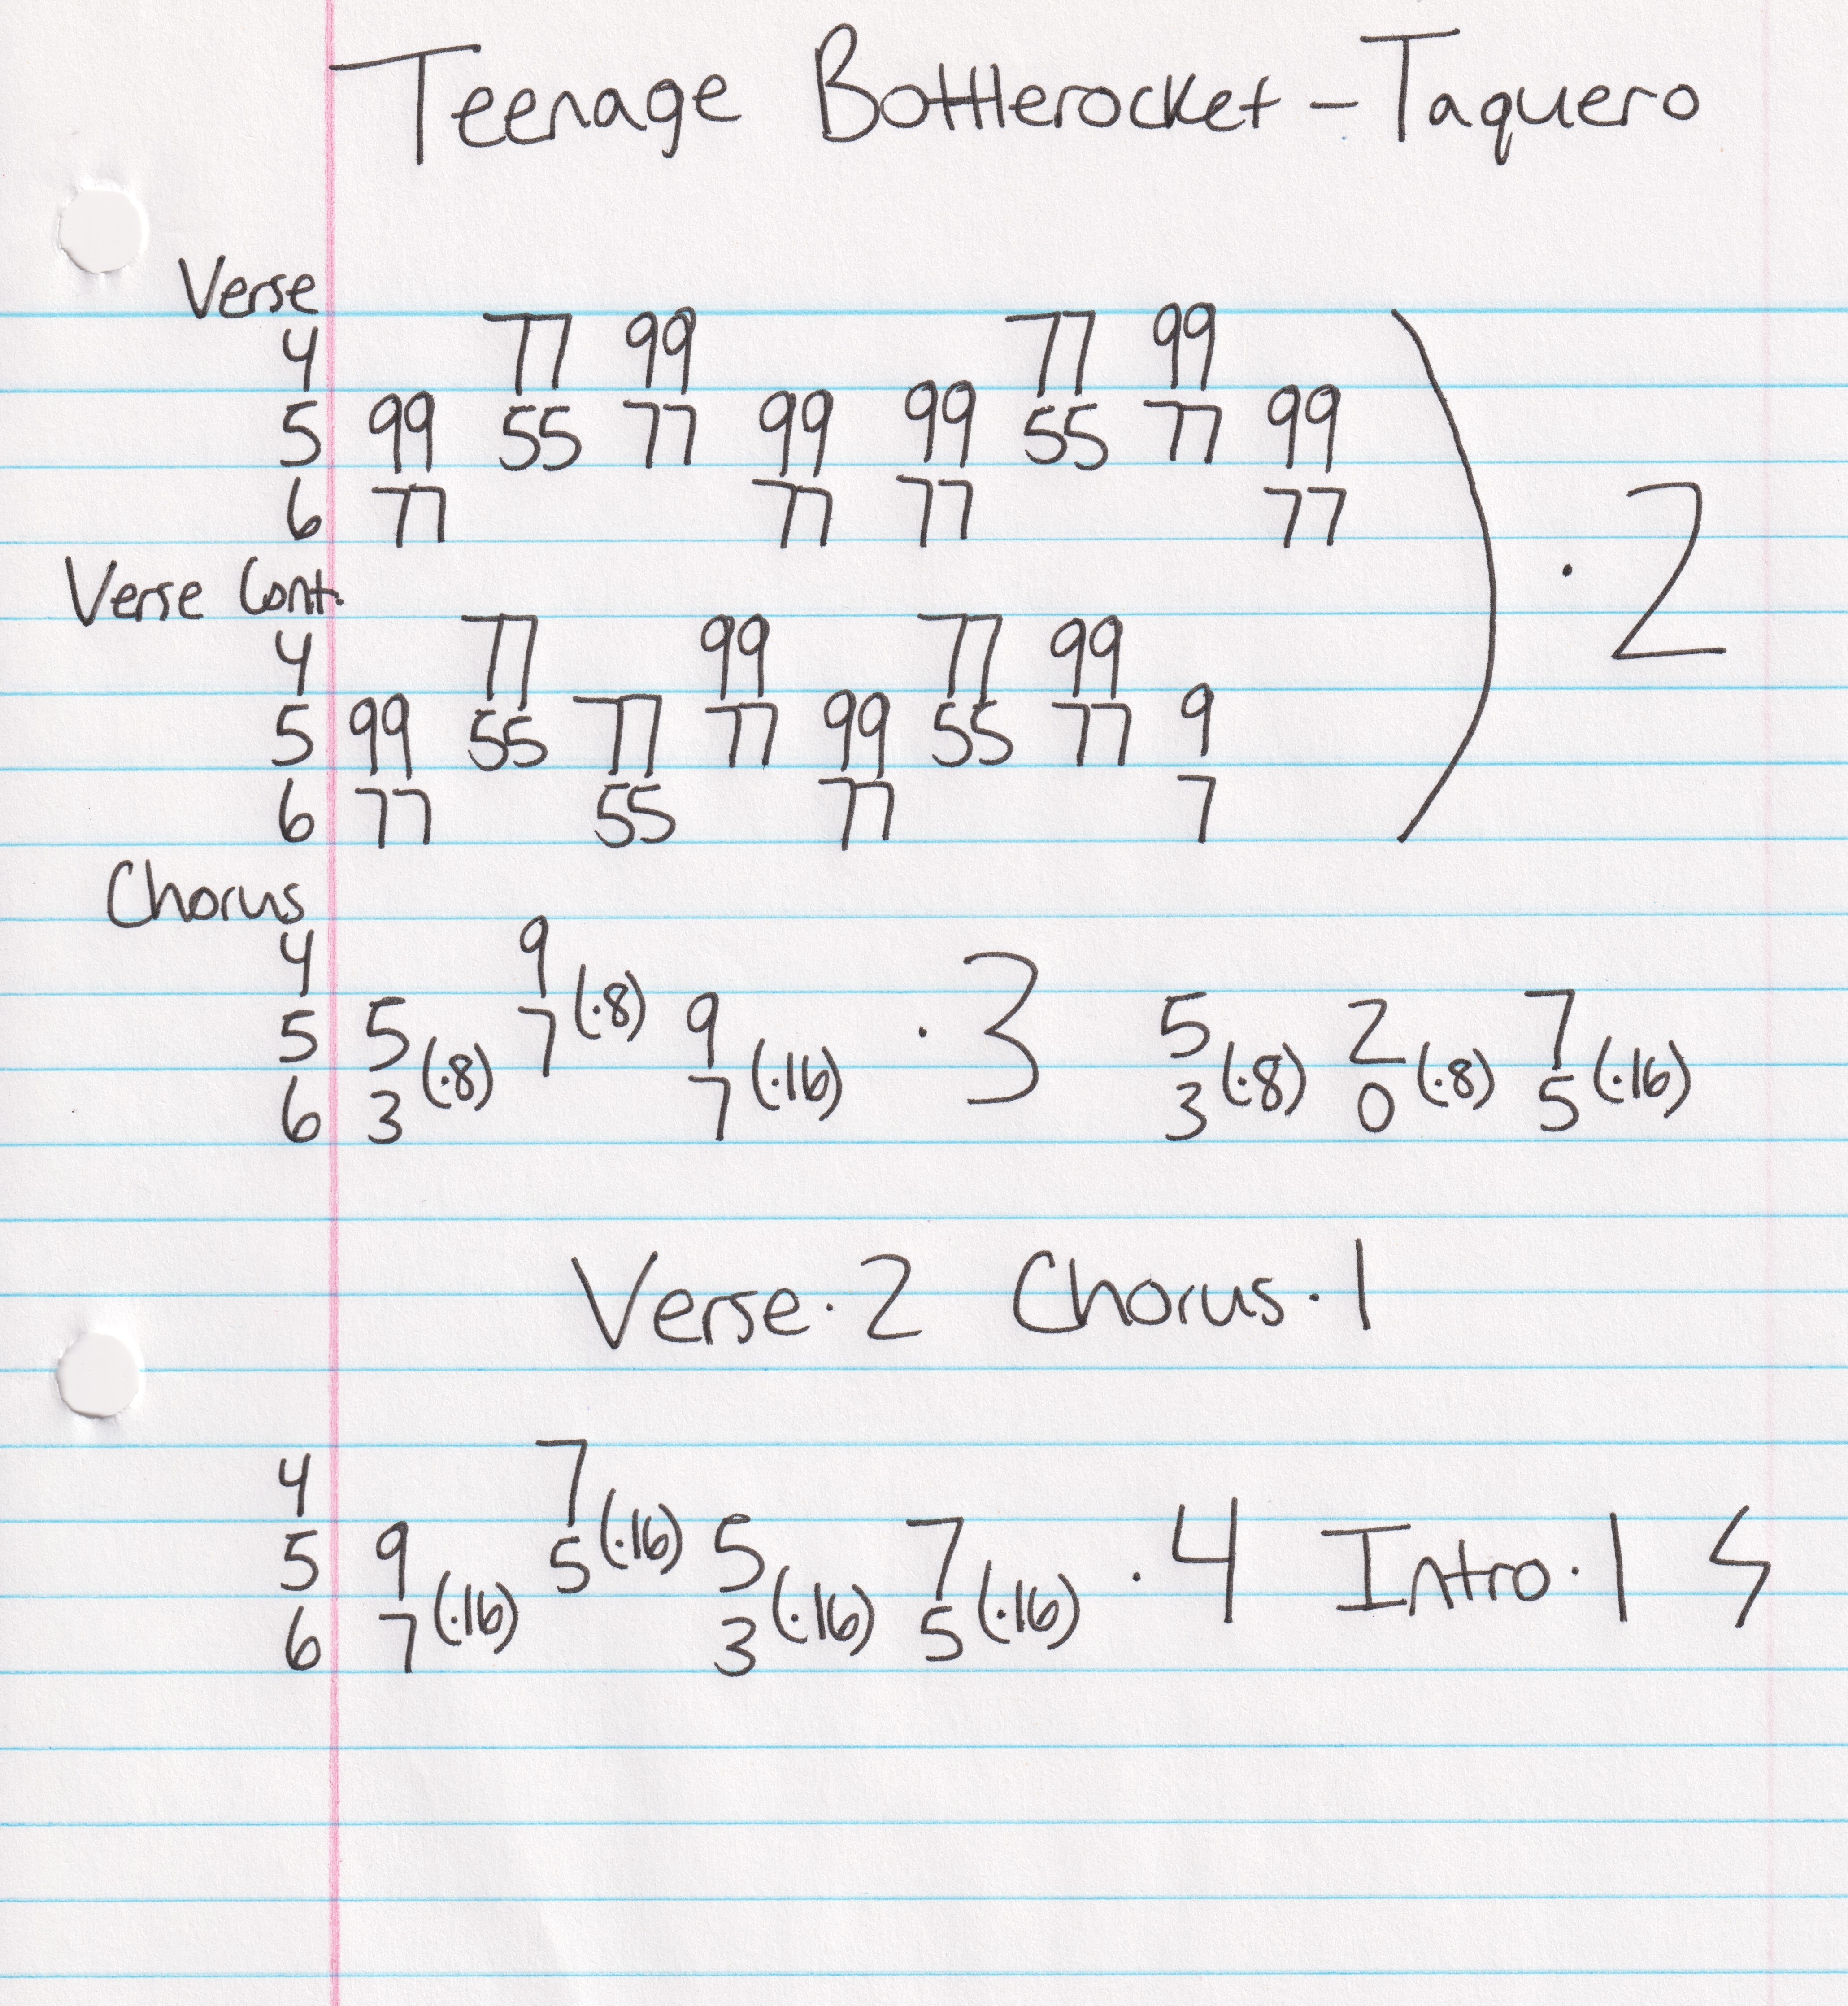 Teenage Bottlerocket - Taquero
Verse
4 77 99 77 99
5 99 55 77 99 99 55 77 99
6 77 77 77 77
) · 2
Verse Cont.
4 77 99 77 99
5 99 55 77 77 99 55 77 9
6 77 55 77 7
Chorus
4 9
5 5 (·8) 7 (·8) 9 · 3 5 2 7
6 3 7 (·16) 3 (·8) 0 (·8) 5 (·16)
Verse · 2 Chorus · 1
4 7
5 9 5 (·16) 5 7 · 4 Intro · 1
6 7 (·16) 3 (·16) 5 (·16)